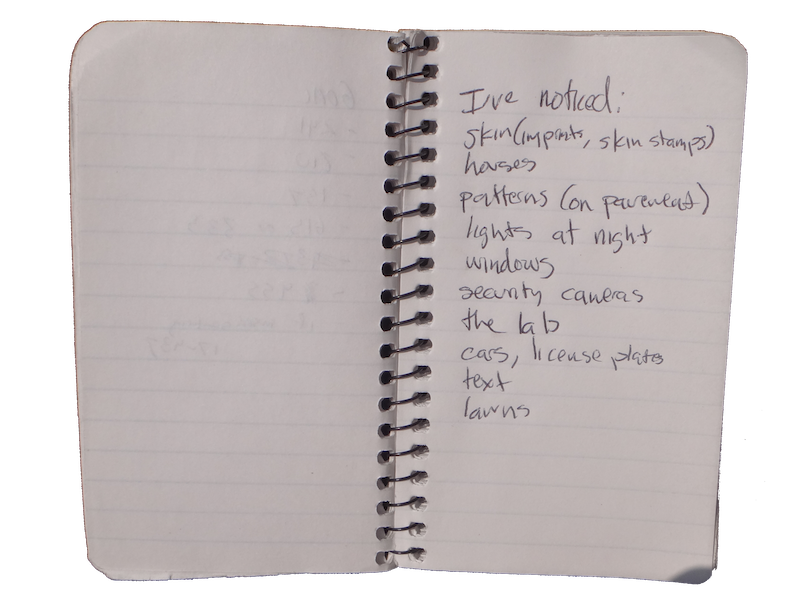 I've noticed:
skin (imprints, skin stamps)
houses
patterns (on pavement)
lights at night
windows
security cameras
the lab
cars, license plates
text
lawns